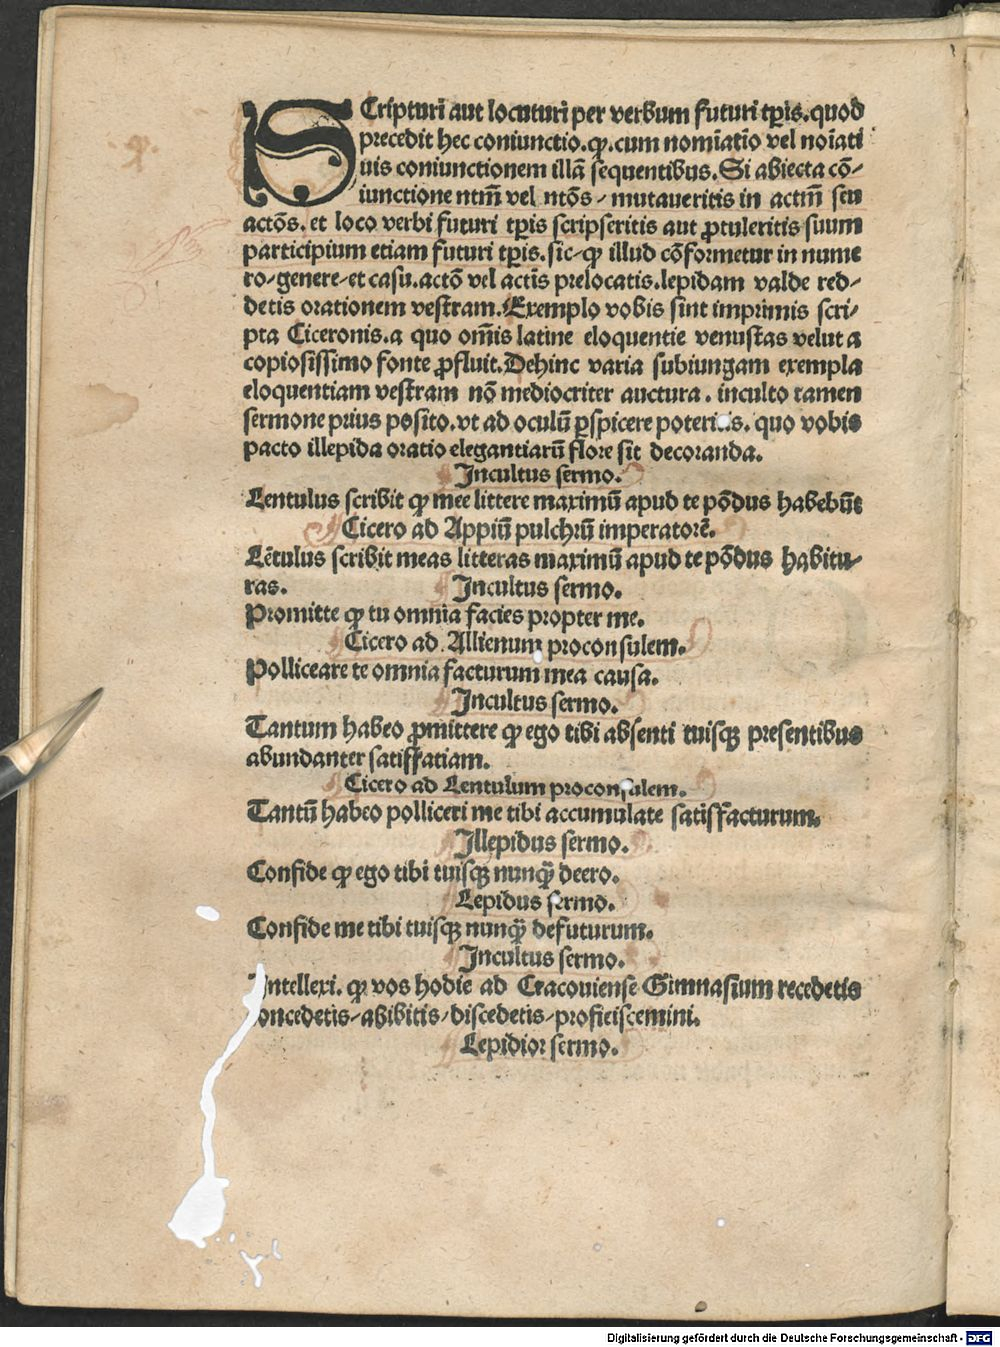 SCripturi aut locuturi per verbum futuri tꝑis.quod
precedit hec coniunctio.ꝙ.cum nomīatīo vel noīati
uis coniunctionem illā sequentibus.Si abiecta cō-
iunctione ntm̄ vel ntōs / mutaueritis in actm̄ seu
actōs.et loco verbi futuri tꝑis scripseritis aut ꝓtuleritis suum
participium etiam futuri tꝑis.sic-ꝙ illud cōformetur in nume
ro-genere-et casu.actō vel actīs prelocatis.lepidam valde red-
detis orationem vestram.Exemplo vobis sint imprimis scri-
pta Ciceronis.a quo om̄is latine eloquentie venustas velut a
copiosissimo fonte ꝓfluit.Dehinc varia subiungam exempla
eloquentiam vestram nō mediocriter auctura. inculto tamen
sermone prius posito.vt ad oculū ꝑspicere quo vobis
pacto illepida oratio elegantiarū flore sit decoranda.
Incultus sermo.
Lentulus scribit ꝙ mee littere maximū apud te pōdus habebūt
Cicero ad Appiū pulchrū imperatorē.
Lētulus scribit meas litteras maximū apud te pōdus habitu-
ras. Incultus sermo.
Promitte ꝙ tu omnia facies propter me.
Cicero ad Allienum proconsulem.
Polliceare te omnia facturum mea causa.
Incultus sermo.
Tantum habeo ꝓmittere ꝙ ego tibi absenti tuisqꝫ presentibus
abundanter satisfatiam.
Cicero ad Lentulum proconsulem.
Tantū habeo polliceri me tibi accumulate satisfacturum.
Illepidus sermo.
Confide ꝙ ego tibi tuisqꝫ nunqꝫ̄ deero.
Lepidus sermo.
Confide me tibi tuisqꝫ nunqꝫ̄ defuturum.
Incultus sermo.
Intellexi. ꝙ vos hodie ad Cracouiense Gimnasium recedetis
oncedetis-abibitis/discedetis-proficiscemini.
Lepidior sermo.
Digitalisierung gefördert durch die Deutsche Forschungsgemeinschaft - DFG